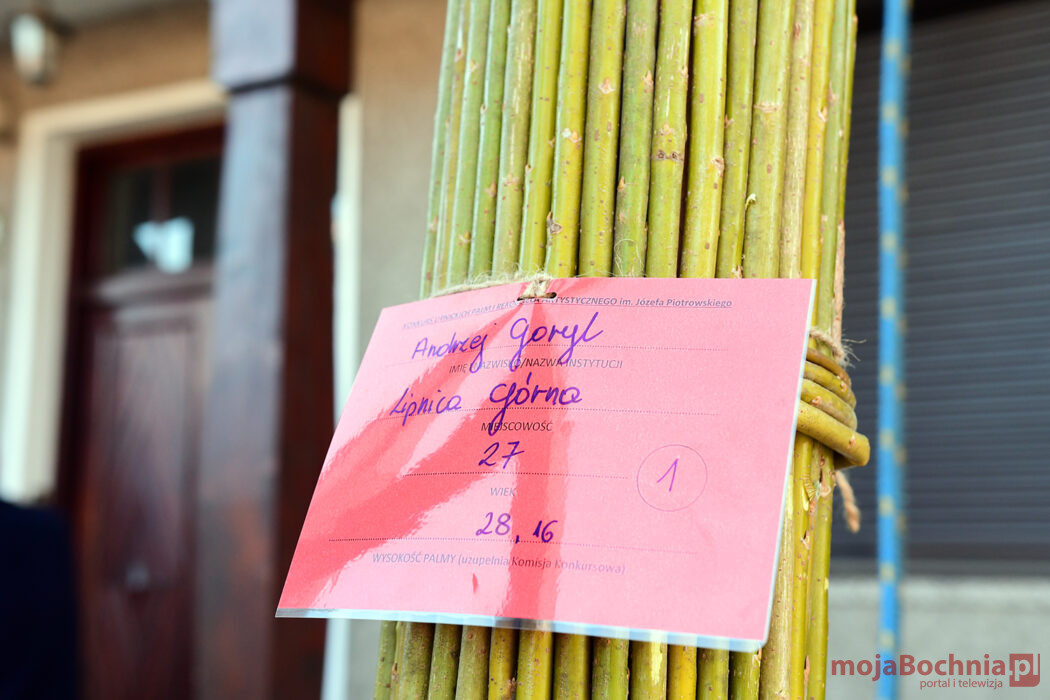 KONKURS LIPNICKICH PALM I RĘKODZIEŁA ARTYSTYCZNEGO im. Józefa Piotrowskiego
Andrzej Goryl
IMIĘ I NAZWISKO/NAZWA INSTYTUCJI
Lipnica Górna
MIEJSCOWOŚĆ
27
1
WIEK
28,16
WYSOKOŚĆ PALMY (uzupełnia Komisja Konkursowa)
mojaBochnia.pl
portal i telewizja